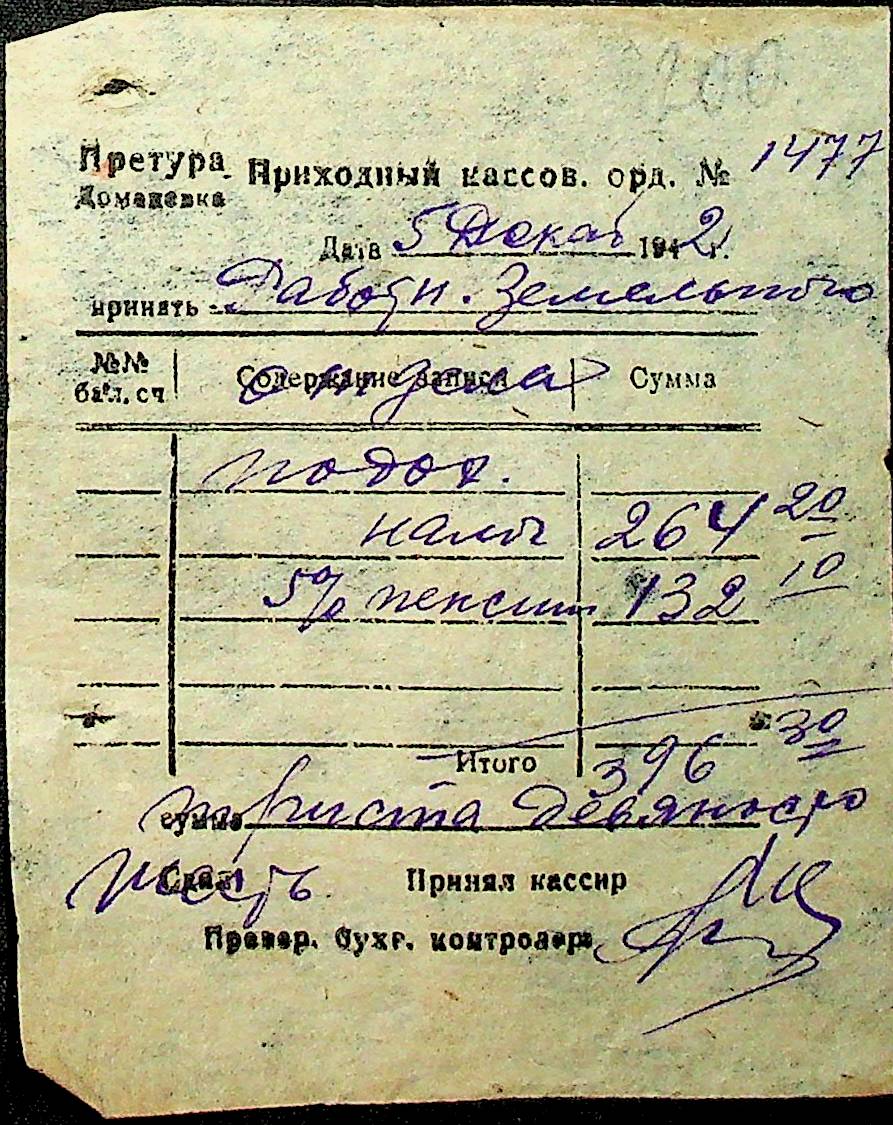 200
Претура Приходный кассов. орд. № 1477
Доманевка
Дата 5 Декаб 1942 г.
принять Работн. Земельного
№№ бал. сч Содержание записи Сумма
отдела
подох.
налог 264 20
5% пенсии 132 10
Итого 396 30
сумма триста девяносто
шесть
Сдал Принял кассир
Провер. бухг. контролер